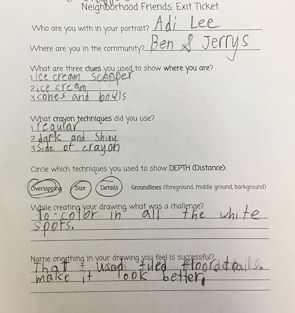 Neighborhood Friends: Exit Ticket
Who are you with in your portrait? Adi Lee
Where are you in the community? Ben & Jerrys
What are three clues you used to show where you are?
1. ice cream scooper
2. ice cream
3. cones and bowls
What crayon techniques did you use?
1. regular
2. dark and shiny
3. side of crayon
Circle which techniques you used to show DEPTH (Distance).
Overlapping Size Details Groundlines (foreground, middle ground, background)
While creating your drawing, what was a challenge?
To color in all the white
spots.
Name one thing in your drawing you feel is successful?
That I used tiled floor
make it look better.